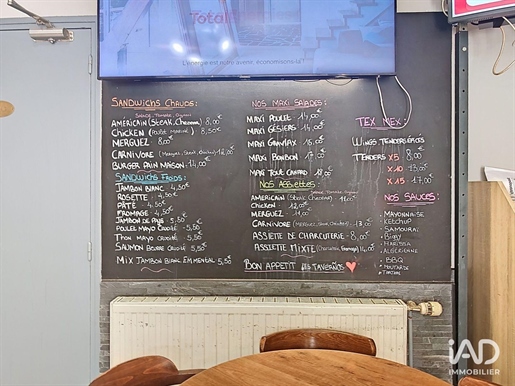 Total
L'énergie est notre avenir, économisons-la !
SANDWICHS CHAUDS :
SALADE, TOMATE, OIGNONS
AMÉRICAIN (STEAK, CHEDDAR) 8,00 €
CHICKEN (POULET MARINÉ) 8,50€
MERGUEZ 8,00
CARNIVORE (MERGUEZ, STEAK,
BURGER PAIN MAISON : 14,00 €
SANDWICHS FROIDS :
JAMBON BLANC 4,50€
ROSETTE 4,50
PÂTÉ 4,50
FROMAGE 4,50
JAMBON DE PAYS 5,50 €
POULET MAYO CRUDITÉ 5,50
THON MAYO CRUDITÉ 5,50
SAUMON BEURRE CRUDITÉ 5,50
MIX JAMBON BLANC EMMENTAL 5,50€
NOS MAXI SALADES :
MAXI POULET 14,00 €
MAXI GÉSIERS 14,00
MAXI GRAVLAX
MAXI BONBON 17,00
MAXI TOUT CANARD
NOS ASSIETTES :
SALADE, TOMATE, OIGNONS
AMERICAIN (STEAK CHEDDAR)
CHICKEN 12,00
MERGUEZ 11,00
CARNIVORE (MERGUEZ, STEAK, CHICKEN) 13,00
ASSIETTE DE CHARCUTERIE - 8,00
ASSIETTE MIXTE (CHARCUTERIE, FROMAGE) 14,00
BON APPETIT LES TAVERNOS
TEX MEX :
WINGS TENDERS ÉPICÉS
TENDERS X5 8,00
X 10 - 13,00
X 15 - 17,00
NOS SAUCES :
- MAYONNAISE
- KETCHUP
- SAMOURAÏ
- BIGGY
- HARISSA
- ALGÉRIENNE
- BBQ
- MOUTARDE
- TARTARE
iAD
IMMOBILIER